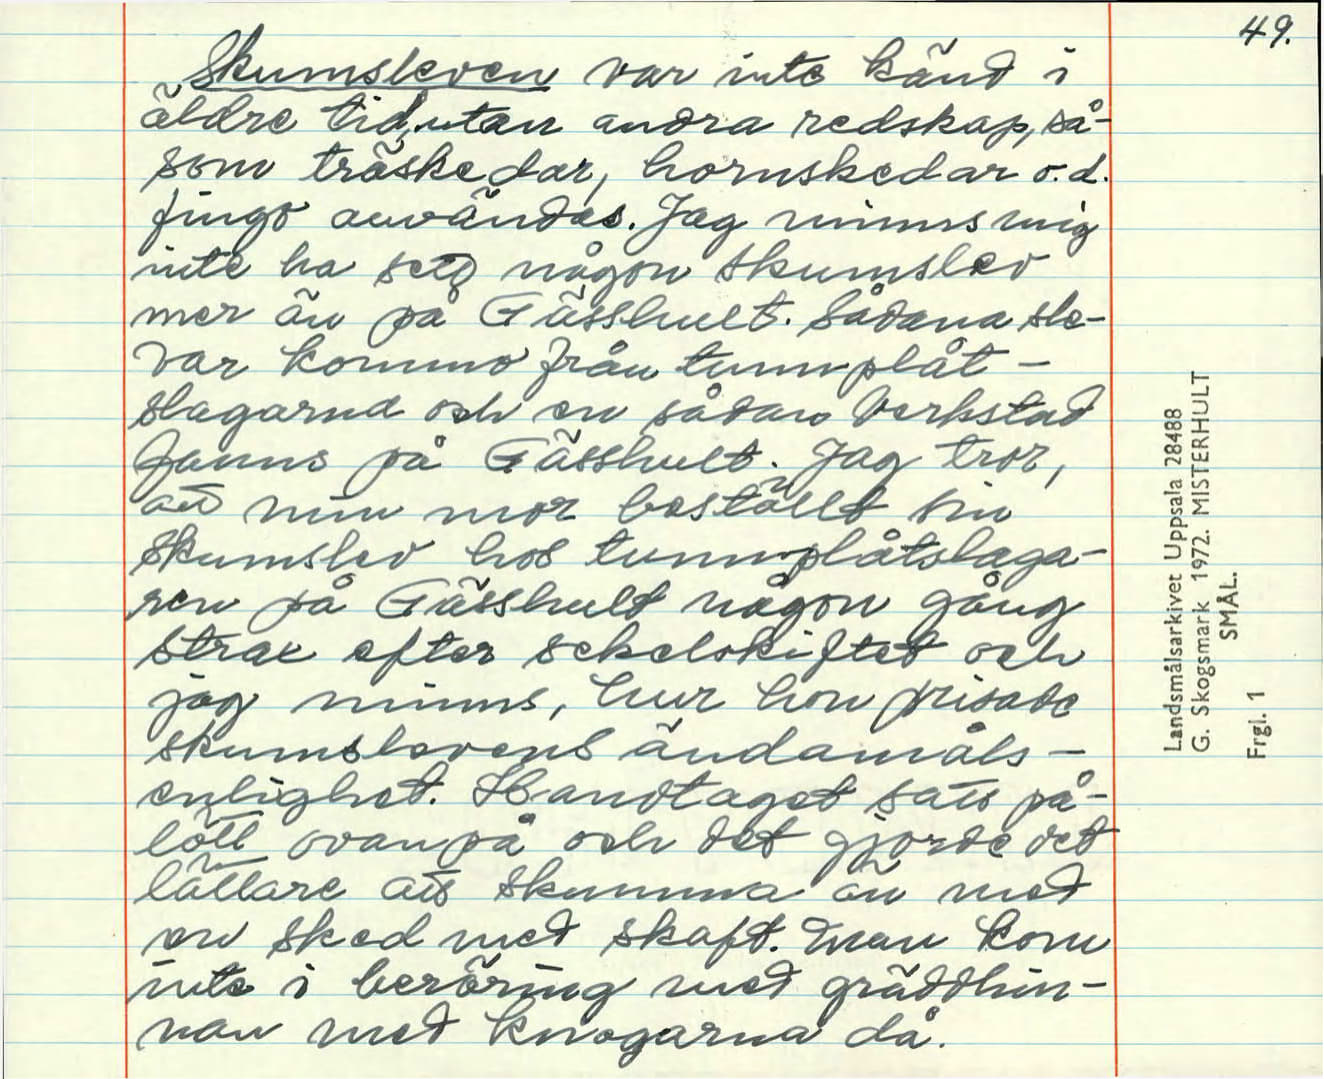 49.
Skumsleven var inte känd i
äldre tid, utan andra redskap, så-
som träskedar, hornskedar o.d.
fingo användas. Jag minns mig
inte ha sett någon skumslev
mer än på Gässhult. Sådana sle-
var kommo från tunnplåt-
slagarna och en sådan verkstad
fanns på Gässhult. Jag tror,
att min mor beställt sin
skumslev hos tunnplåtslaga-
ren på Gässhult någon gång
strax efter sekelskiftet och
jag minns, hur hon prisade
skumslevens ändamåls-
enlighet. Handtaget satt på-
lött ovanpå och det gjorde det
lättare att skumma än med
en sked med skaft. Man kom
inte i beröring med gräddhin-
nan med knogarna då.
Landsmålsarkivet Uppsala 28488
G. Skogsmark 1972. MISTERHULT
SMÅL.
Frgl. 1